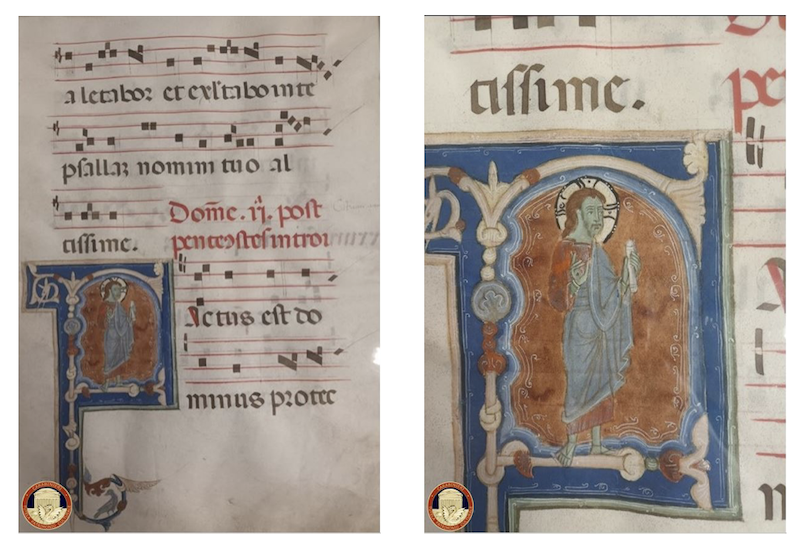 a letabor et exl'tabo in te
psallaʒ nomini tuo al
tissime. Dom̄e. ij. post
pentecostes introi
Actus est do
minus protec
tissime.